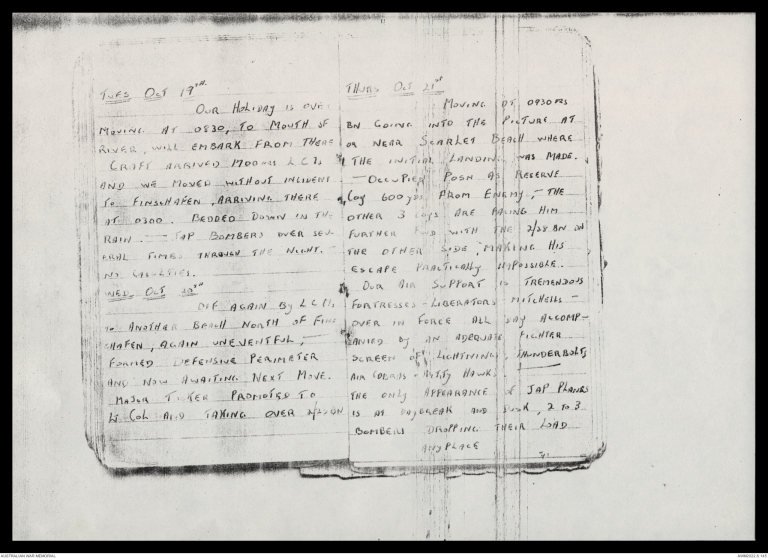 TUES OCT 19TH
OUR HOLIDAY IS OVER.
MOVING AT 0830, TO MOUTH OF
RIVER, WILL EMBARK FROM THERE
CRAFT ARRIVED LCIs
AND WE MOVED WITHOUT INCIDENT
TO FINSCHAFEN, ARRIVING THERE
AT 0300. BEDDED DOWN IN THE
RAIN. — JAP BOMBERS OVER SEV-
ERAL TIMES THROUGH THE NIGHT. —
NO CASULTIES.
WED. OCT 20TH
OFF AGAIN BY LCIs
TO ANOTHER BEACH NORTH OF FINS
CHAFEN, AGAIN UNEVENTFUL, —
FORMED DEFENSIVE PERIMETER
AND NOW AWAITING NEXT MOVE.
MAJOR PROMOTED TO
LT COL AND TAKING OVER BN
THURS OCT 21ST
MOVING AT 0930 HRS
BN GOING INTO THE PICTURE AT
OR NEAR SCARLET BEACH WHERE
THE INITIAL LANDING WAS MADE.
— OCCUPIED POSN AS RESERVE
COY 600 YDS FROM ENEMY, — THE
OTHER 3 COYS ARE FACING HIM
FURTHER FWD WITH THE 2/28 BN ON
THE OTHER SIDE, MAKING HIS
ESCAPE PRACTICALLY IMPOSSIBLE.
OUR AIR SUPPORT IS TREMENDOUS
FORTRESSES – LIBERATORS MITCHELLS –
OVER IN FORCE ALL DAY ACCOMP-
ANIED BY AN ADEQUATE FIGHTER
SCREEN OF LIGHTNINGS, THUNDERBOLTS
AIR COBRAS – KITTY HAWKS.
THE ONLY APPEARANCE OF JAP PLANES
IS AT DAYBREAK AND DUSK, 2 TO 3
BOMBERS DROPPING THEIR LOAD
ANYPLACE
AUSTRALIAN WAR MEMORIAL